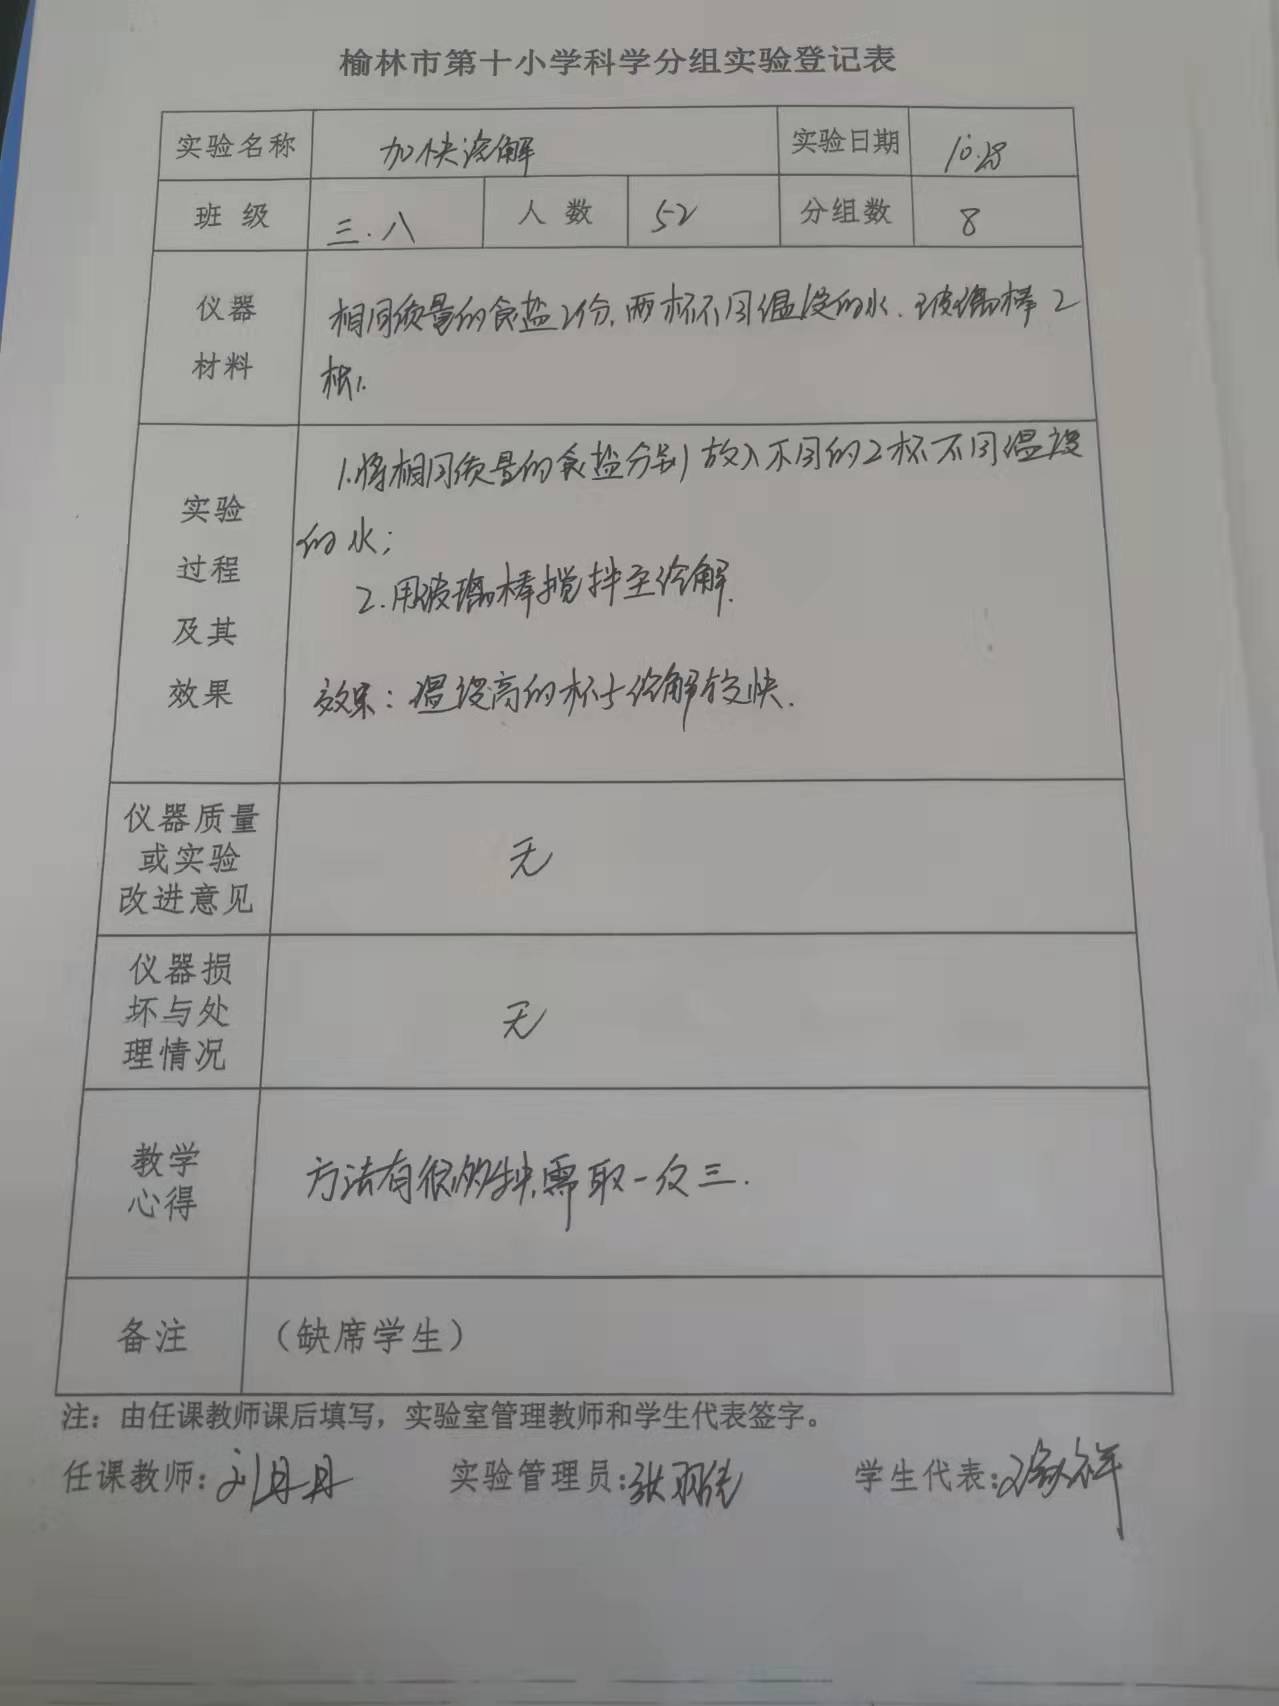 榆林市第十小学科学分组实验登记表
实验名称 加快溶解 实验日期 10.28
班 级 三.八 人 数 52 分组数 8
仪器
材料
相同质量的食盐2份,两杯不同温度的水.玻璃棒2
根.
实验
过程
及其
效果
1.将相同质量的食盐分别放入不同的2杯不同温度
的水;
2.用玻璃棒搅拌至溶解.
效果:温度高的杯子溶解较快.
仪器质量
或实验
改进意见
无
仪器损
坏与处
理情况
无
教学
心得
方法有很多 需取一反三.
备注 (缺席学生)
注:由任课教师课后填写,实验室管理教师和学生代表签字。
任课教师:刘丹丹 实验管理员:张 学生代表: